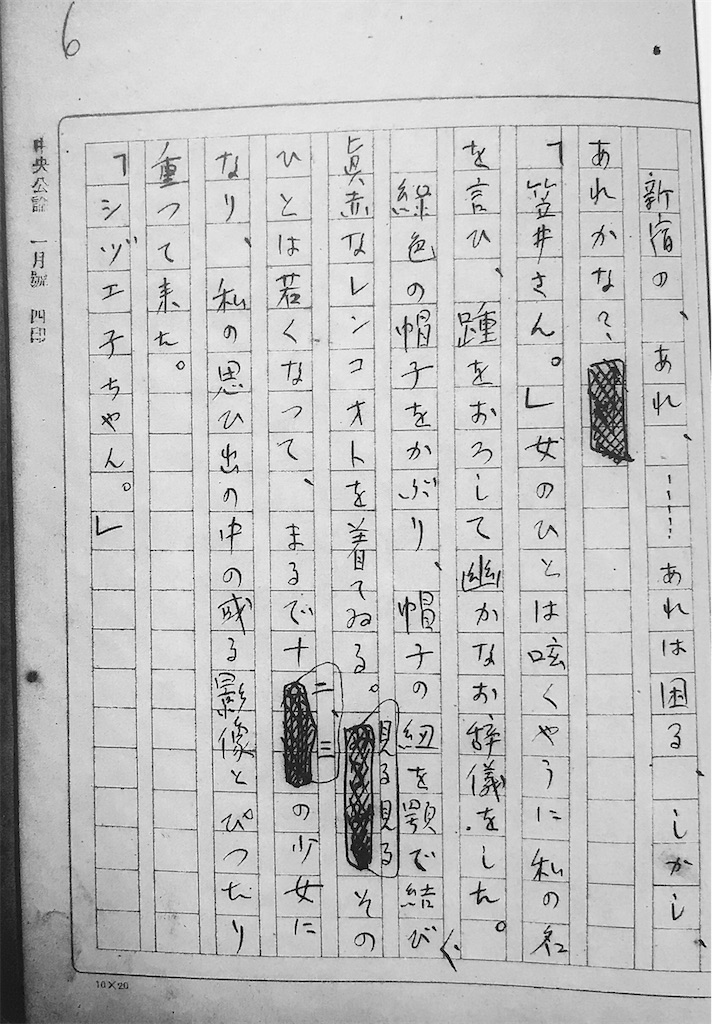 6
新宿の、あれ、……あれは困る、しかし、
あれかな?
「笠井さん。」女のひとは呟くやうに私の名
を言ひ、踵をおろして幽かなお辞儀をした。
緑色の帽子をかぶり、帽子の紐を顎で結び、
眞赤なレンコオトを着てゐる。見る見るその
ひとは若くなつて、まるで十二、三の少女に
なり、私の思ひ出の中の或る影像とぴつたり
重つて来た。
「シヅエ子ちやん。」
中央公論 一月號 四印
10×20